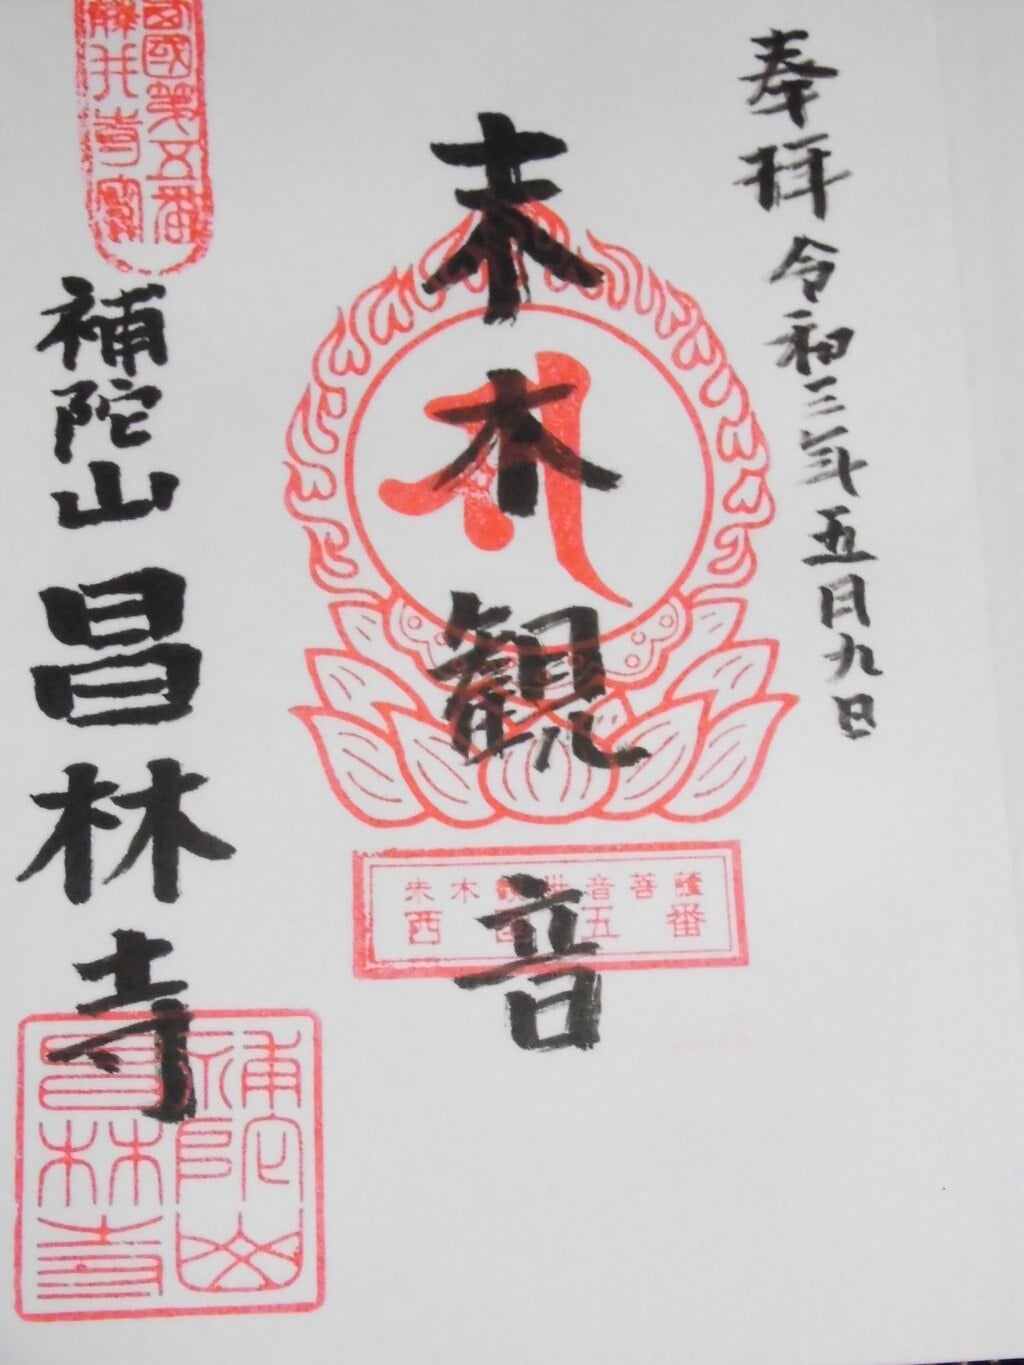 奉拝 令和三年五月九日
末木観音
末木觀世音菩薩
西国五番
西國第五番
藤井寺寫
補陀山 昌林寺
補陀山
昌林寺